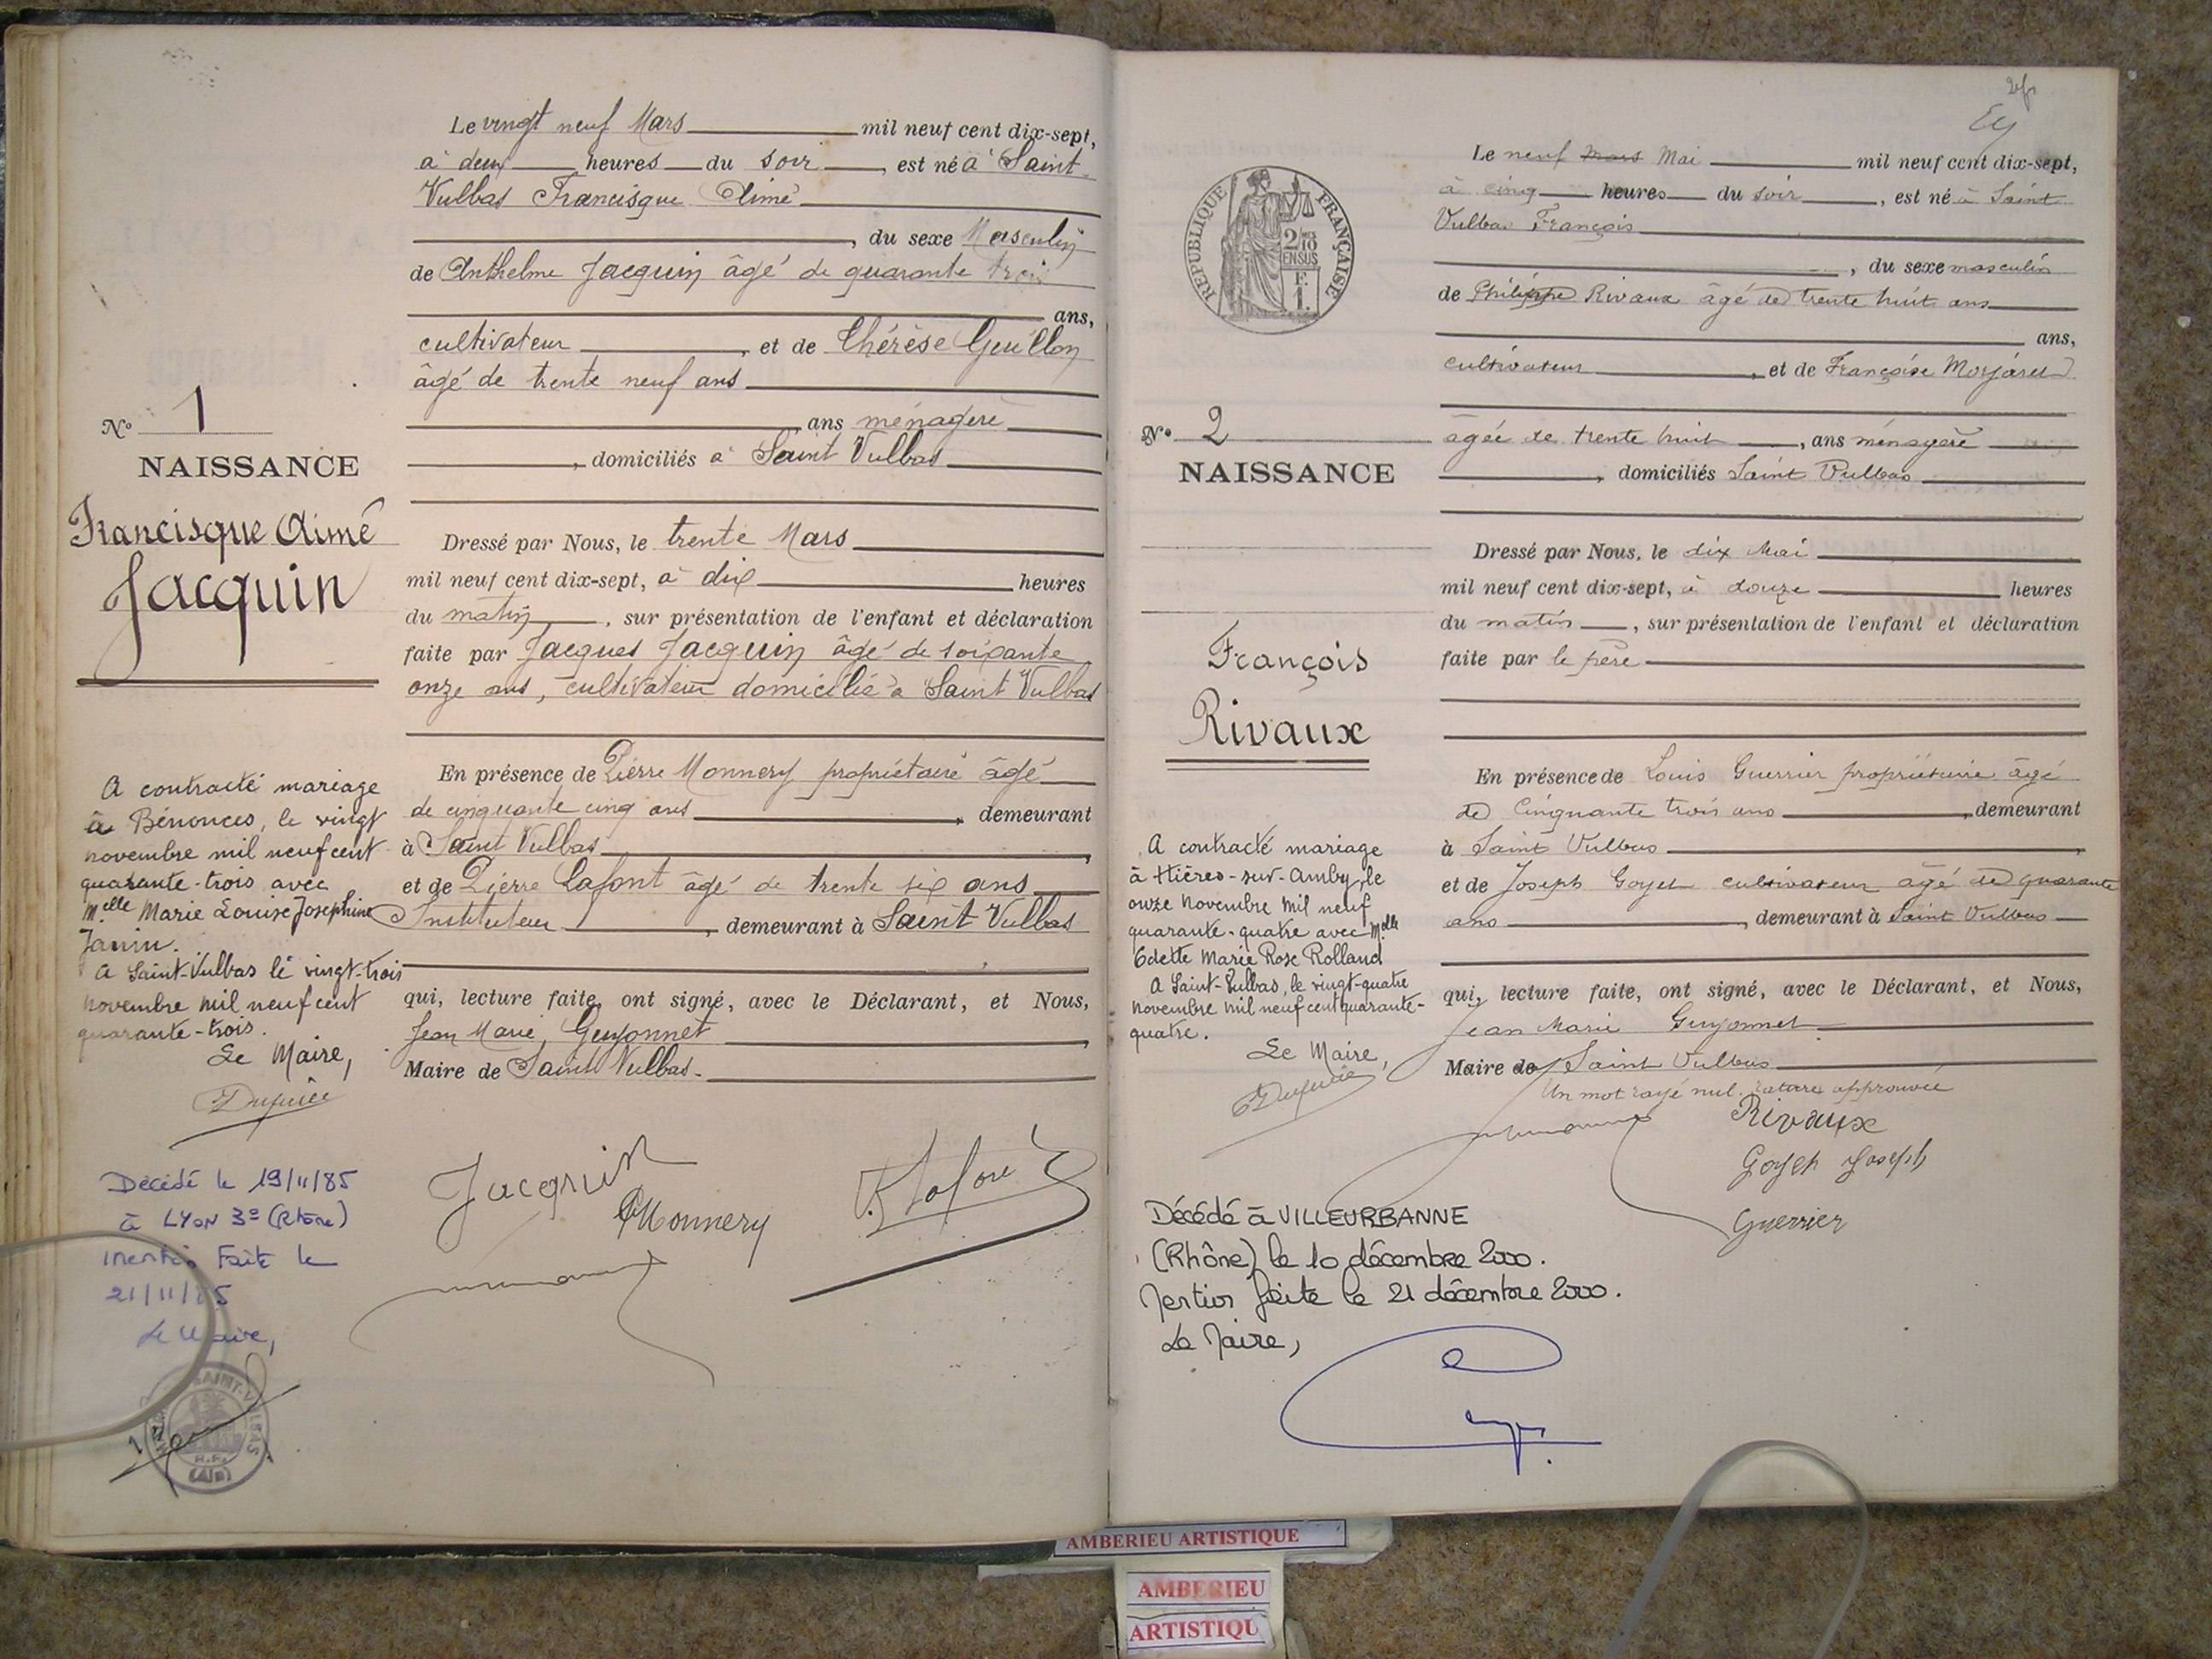 Le vingt neuf Mars mil neuf cent dix-sept,
à deux heures du soir, est né à Saint
Vulbas Francisque Aimé
, du sexe Masculin
de Anthelme Jacquin âgé de quarante trois
ans,
cultivateur, et de Thérèse Guillon
âgé de trente neuf ans
ans ménagère
, domiciliés à Saint Vulbas
N° 1
NAISSANCE
Francisque Aimé
Jacquin
Dressé par Nous, le trente Mars
mil neuf cent dix-sept, à dix heures
du matin, sur présentation de l'enfant et déclaration
faite par Jacques Jacquin âgé de soixante
onze ans, cultivateur domicilié à Saint Vulbas
En présence de Pierre Monnery propriétaire âgé
de cinquante cinq ans, demeurant
à Saint Vulbas,
et de Pierre Lafont âgé de trente six ans
Instituteur, demeurant à Saint Vulbas
qui, lecture faite, ont signé, avec le Déclarant, et Nous,
Jean Marie Guyonnet,
Maire de Saint Vulbas.
A contracté mariage
à Bénonces, le vingt
novembre mil neuf cent
quarante-trois avec
Melle Marie Louise Josephine
Janin.
A Saint-Vulbas le vingt-trois
novembre mil neuf cent
quarante-trois.
Le Maire,
Jacquin
Monnery
Lafont
Décédé le 19/11/85
à LYON 3e (Rhône)
mention Faite le
21/11/85
Le Maire,
SAINT-VULBAS
R.F.
(Ain)
RÉPUBLIQUE FRANÇAISE
2/10
EN SUS
F.
1.
Le neuf Mars Mai mil neuf cent dix-sept,
à cinq heures du soir, est né à Saint
Vulbas François
, du sexe masculin
de Philippe Rivaux âgé de trente huit ans
ans,
cultivateur, et de Françoise
âgée de trente huit, ans ménagère
, domiciliés Saint Vulbas
N° 2
NAISSANCE
François
Rivaux
Dressé par Nous, le dix Mai
mil neuf cent dix-sept, à douze heures
du matin, sur présentation de l'enfant et déclaration
faite par le père
En présence de Louis Guerrier propriétaire âgé
de Cinquante trois ans, demeurant
à Saint Vulbas,
et de Joseph Goyet cultivateur âgé de quarante
ans, demeurant à Saint Vulbas
qui, lecture faite, ont signé, avec le Déclarant, et Nous,
Jean Marie Guyonnet
Maire de Saint Vulbas
Un mot rayé nul. rature approuvée
A contracté mariage
à Hières-sur-Amby, le
onze novembre mil neuf
quarante-quatre avec Melle
Odette Marie Rose Rolland
A Saint-Vulbas, le vingt-quatre
novembre mil neuf cent quarante-
quatre.
Le Maire,
Rivaux
Goyet Joseph
Guerrier
Décédé à VILLEURBANNE
(Rhône) le 10 décembre 2000.
Mention faite le 21 décembre 2000.
Le Maire,
AMBERIEU ARTISTIQUE
AMBERIEU
ARTISTIQU